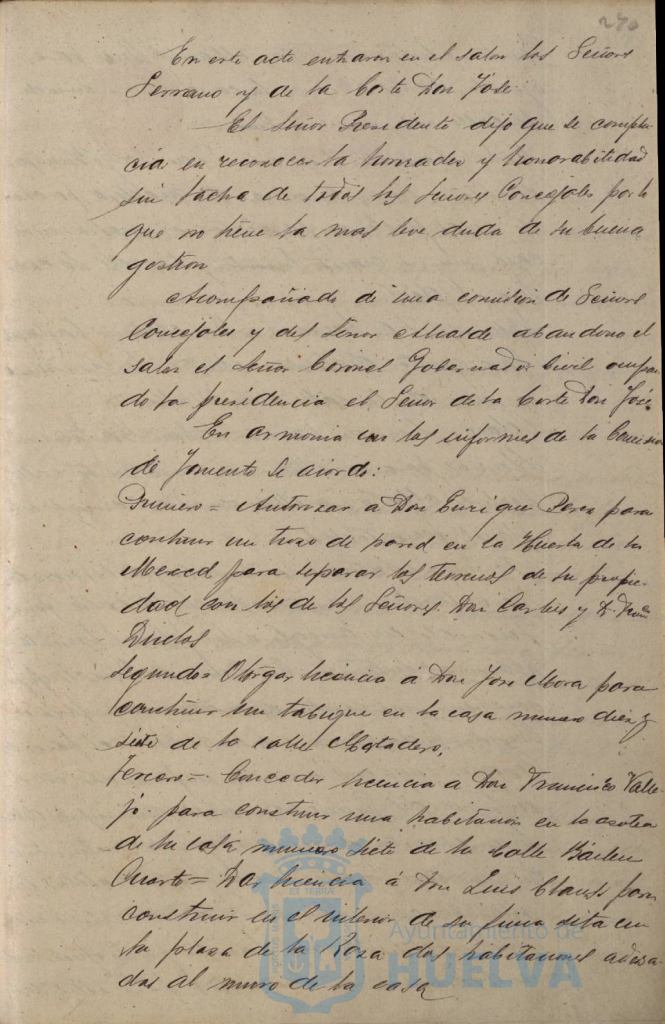 270
En este acto entraron en el salon los Señores
Serrano y de la Corte Don José
El Señor Presidente dijo que se compla-
cia en reconocer la honradez y honorabilidad
sin tacha de todos los Señores Concejales por lo
que no tiene la mas leve duda de su buena
gestion
Acompañado de una comision de Señores
Concejales y del Señor Alcalde abandono el
salon el Señor Coronel Gobernador Civil ocupan-
do la presidencia el Señor de la Corte Don José
En armonia con los informes de la Comision
de Fomento se acordo:
Primero = Autorizar a Don Enrique Perez para
construir un trozo de pared en la Huerta de la
Merced para separar los terrenos de su propie-
dad con los de los Señores Don Carlos y D.
Duclos
Segundo = Otorgar licencia á Don Jose Mora para
construir un tabique en la casa numero diez y
siete de la calle Matadero.
Tercero = Conceder licencia a Don Francisco Valle-
jo para construir una habitacion en la azotea
de su casa numero siete de la Calle Bailen
Cuarto = Dar licencia á Don Luis para
construir en el interior de su finca sita en
la plaza de la Roza dos habitaciones adosa-
das al muro de la casa
Ayuntamiento de
HUELVA